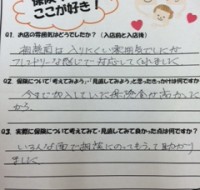 ここが好き！
Q1. お店の雰囲気はどうでしたか？（入店前と入店後）
相談前は入りにくい雰囲気でしたが
フレンドリーな感じで対応してくれました
Q2. 保険について「考えてみよう」・「見直してみよう」と思ったきっかけは何ですか
今まで加入していた保険料が高かった
から。
Q3. 実際に保険について考えてみて・見直してみて良かった点は何ですか？
いろんな面で相談にのってもらって助かり
ました